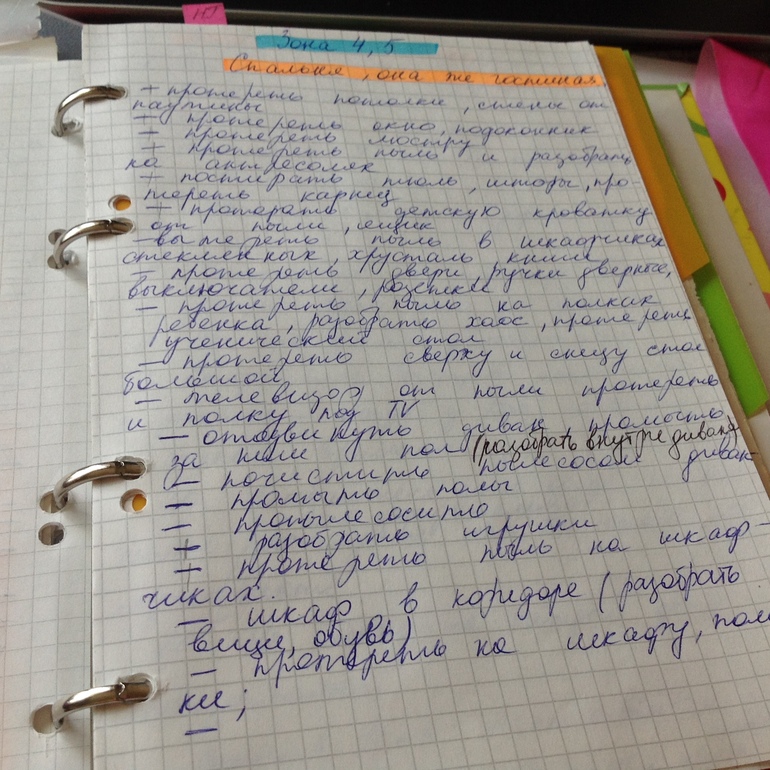 НГ
Зона 4,5
Спальня, она же гостиная.
+ протереть потолки, стены от
паутины
+ протереть окно, подоконник
+ протереть люстру
+ протереть пыль и разобрать
на антресолях
+ постирать тюль, шторы, про-
тереть карниз
+ протереть детскую кроватку
от пыли, ящик
- вытереть пыль в шкафчиках
стеклянных, хрусталь, книги
- протереть двери, ручки дверные,
выключатели, розетки
- протереть пыль на полках
ребенка, разобрать хаос, протереть
ученический стол
- протереть сверху и снизу стол
большой
- телевизор от пыли протереть
и полку под TV
- отодвинуть диван промыть
за ним пол (разобрать внутри дивана)
- почистить пылесосом диван
- промыть полы
- пропылесосить
- разобрать игрушки
- протереть пыль на шкаф-
чиках.
- шкаф в коридоре (разобрать
вещи, обувь)
- протереть на шкафу, пол
ки;
-